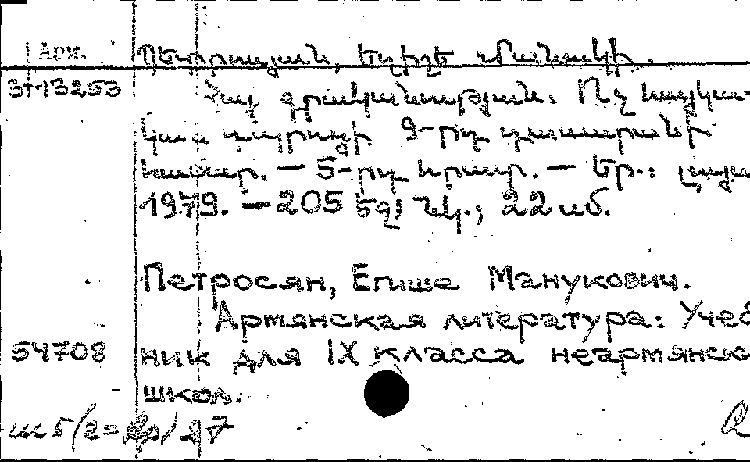 Арм. Պետրոսյան, Եղիշե Մանուկի.
Э1-13253 Հայ գրականություն: Ոչ հայկա-
կան դպրոցի 9-րդ դասարանի
համար. — 5-րդ հրատ. — Եր.: Լույս
1979. — 205 էջ; նկ.; 22 սմ.
Петросян, Егише Манукович.
Армянская литература: Учеб
54708 ник для IX класса неармянско
школ.